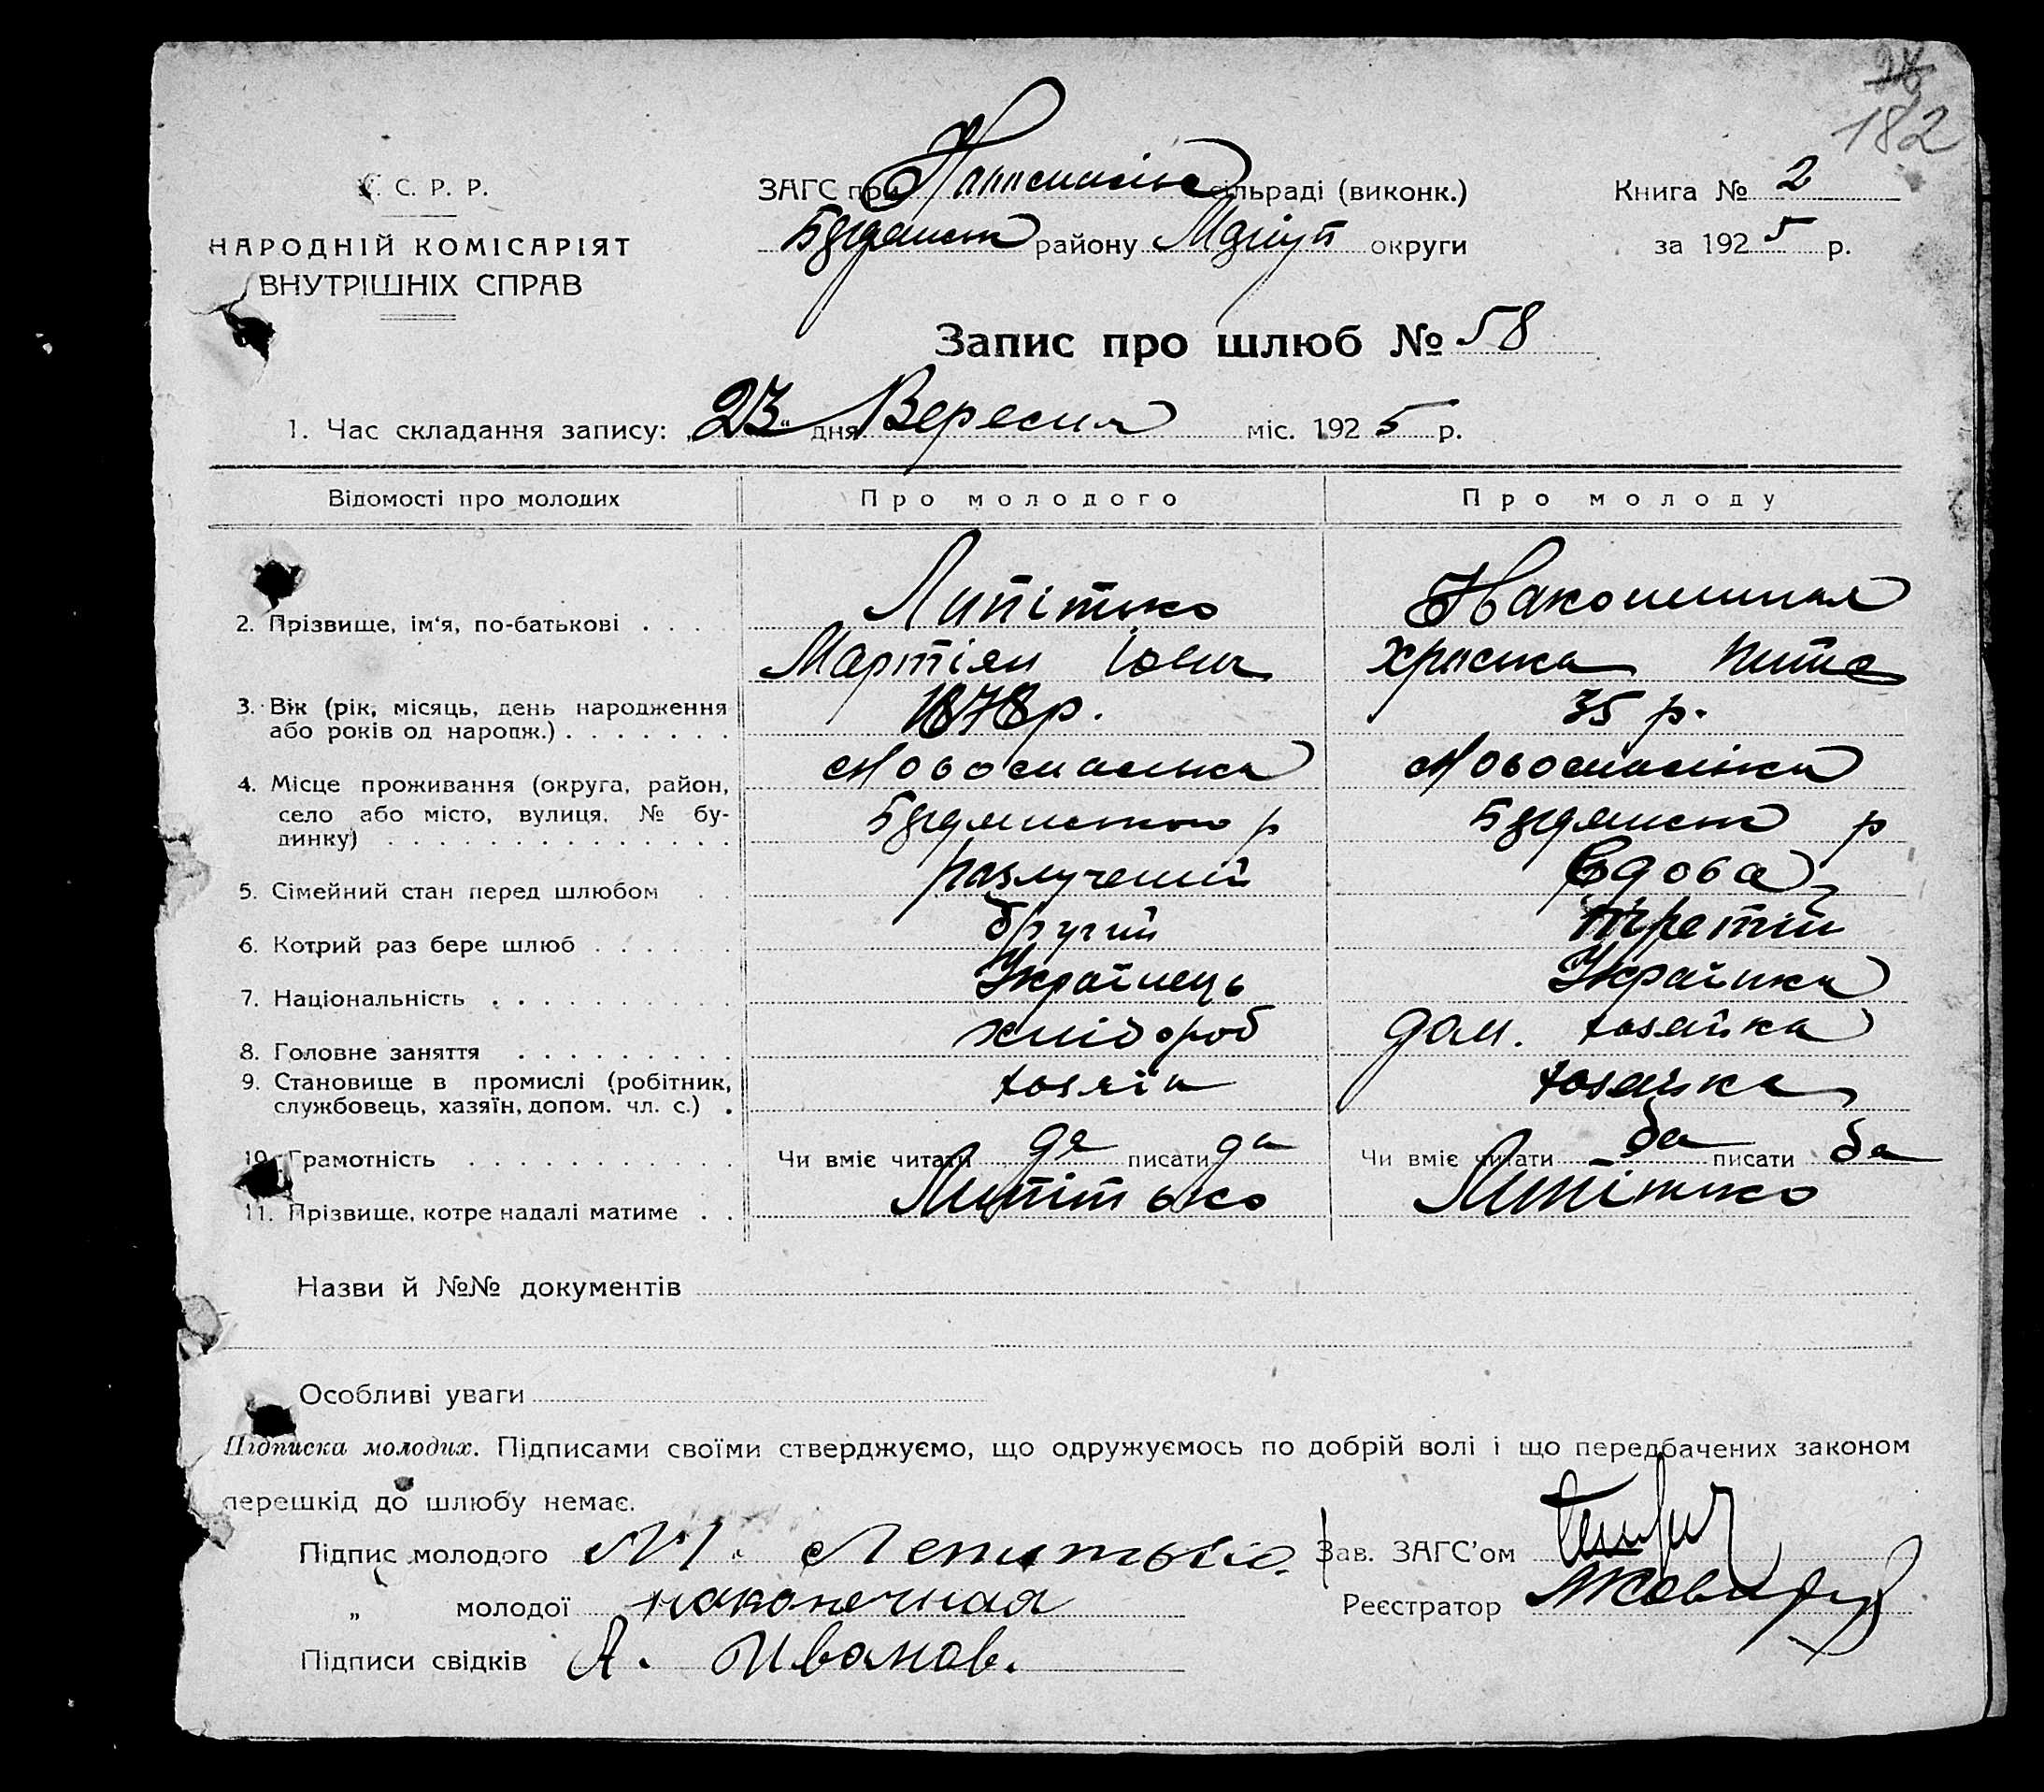 182
У. С. Р. Р.
НАРОДНІЙ КОМІСАРІЯТ
ВНУТРІШНІХ СПРАВ
ЗАГС при сільраді (виконк.)
району округи
Книга № 2
за 1925 р.
Запис про шлюб № 58
1. Час складання запису: „23" дня Вересня міс. 1925 р.
Відомості про молодих Про молодого Про молоду
2. Прізвище, ім'я, по-батькові . . . Липітько
Мартіян Іович
3. Вік (рік, місяць, день народження
або років од народж.) . . . . . . . 1878 р. 35 р.
4. Місце проживання (округа, район, Новоспаська Новоспаська
село або місто, вулиця, № бу-
динку) . . . . . . . . . . . . . . . р р
5. Сімейний стан перед шлюбом . . разлучений Вдова
6. Котрий раз бере шлюб . . . . . . другий третій
7. Національність . . . . . . . . . . Українець Українка
8. Головне заняття . . . . . . . . . хлібороб дом. хозяйка
9. Становище в промислі (робітник,
службовець, хазяїн, допом. чл. с.) . хозяін хозяйка
10. Грамотність . . . . . . . . . . . Чи вміє читати да писати да Чи вміє читати да писати да
11. Прізвище, котре надалі матиме . . Липітько Липітько
Назви й №№ документів
Особливі уваги
Підписка молодих. Підписами своїми стверджуємо, що одружуємось по добрій волі і що передбачених законом
перешкід до шлюбу немає.
Підпис молодого М. Лепитько.
„ молодої наконечная
Підписи свідків А. Иванов.
Зав. ЗАГС'ом
Реєстратор